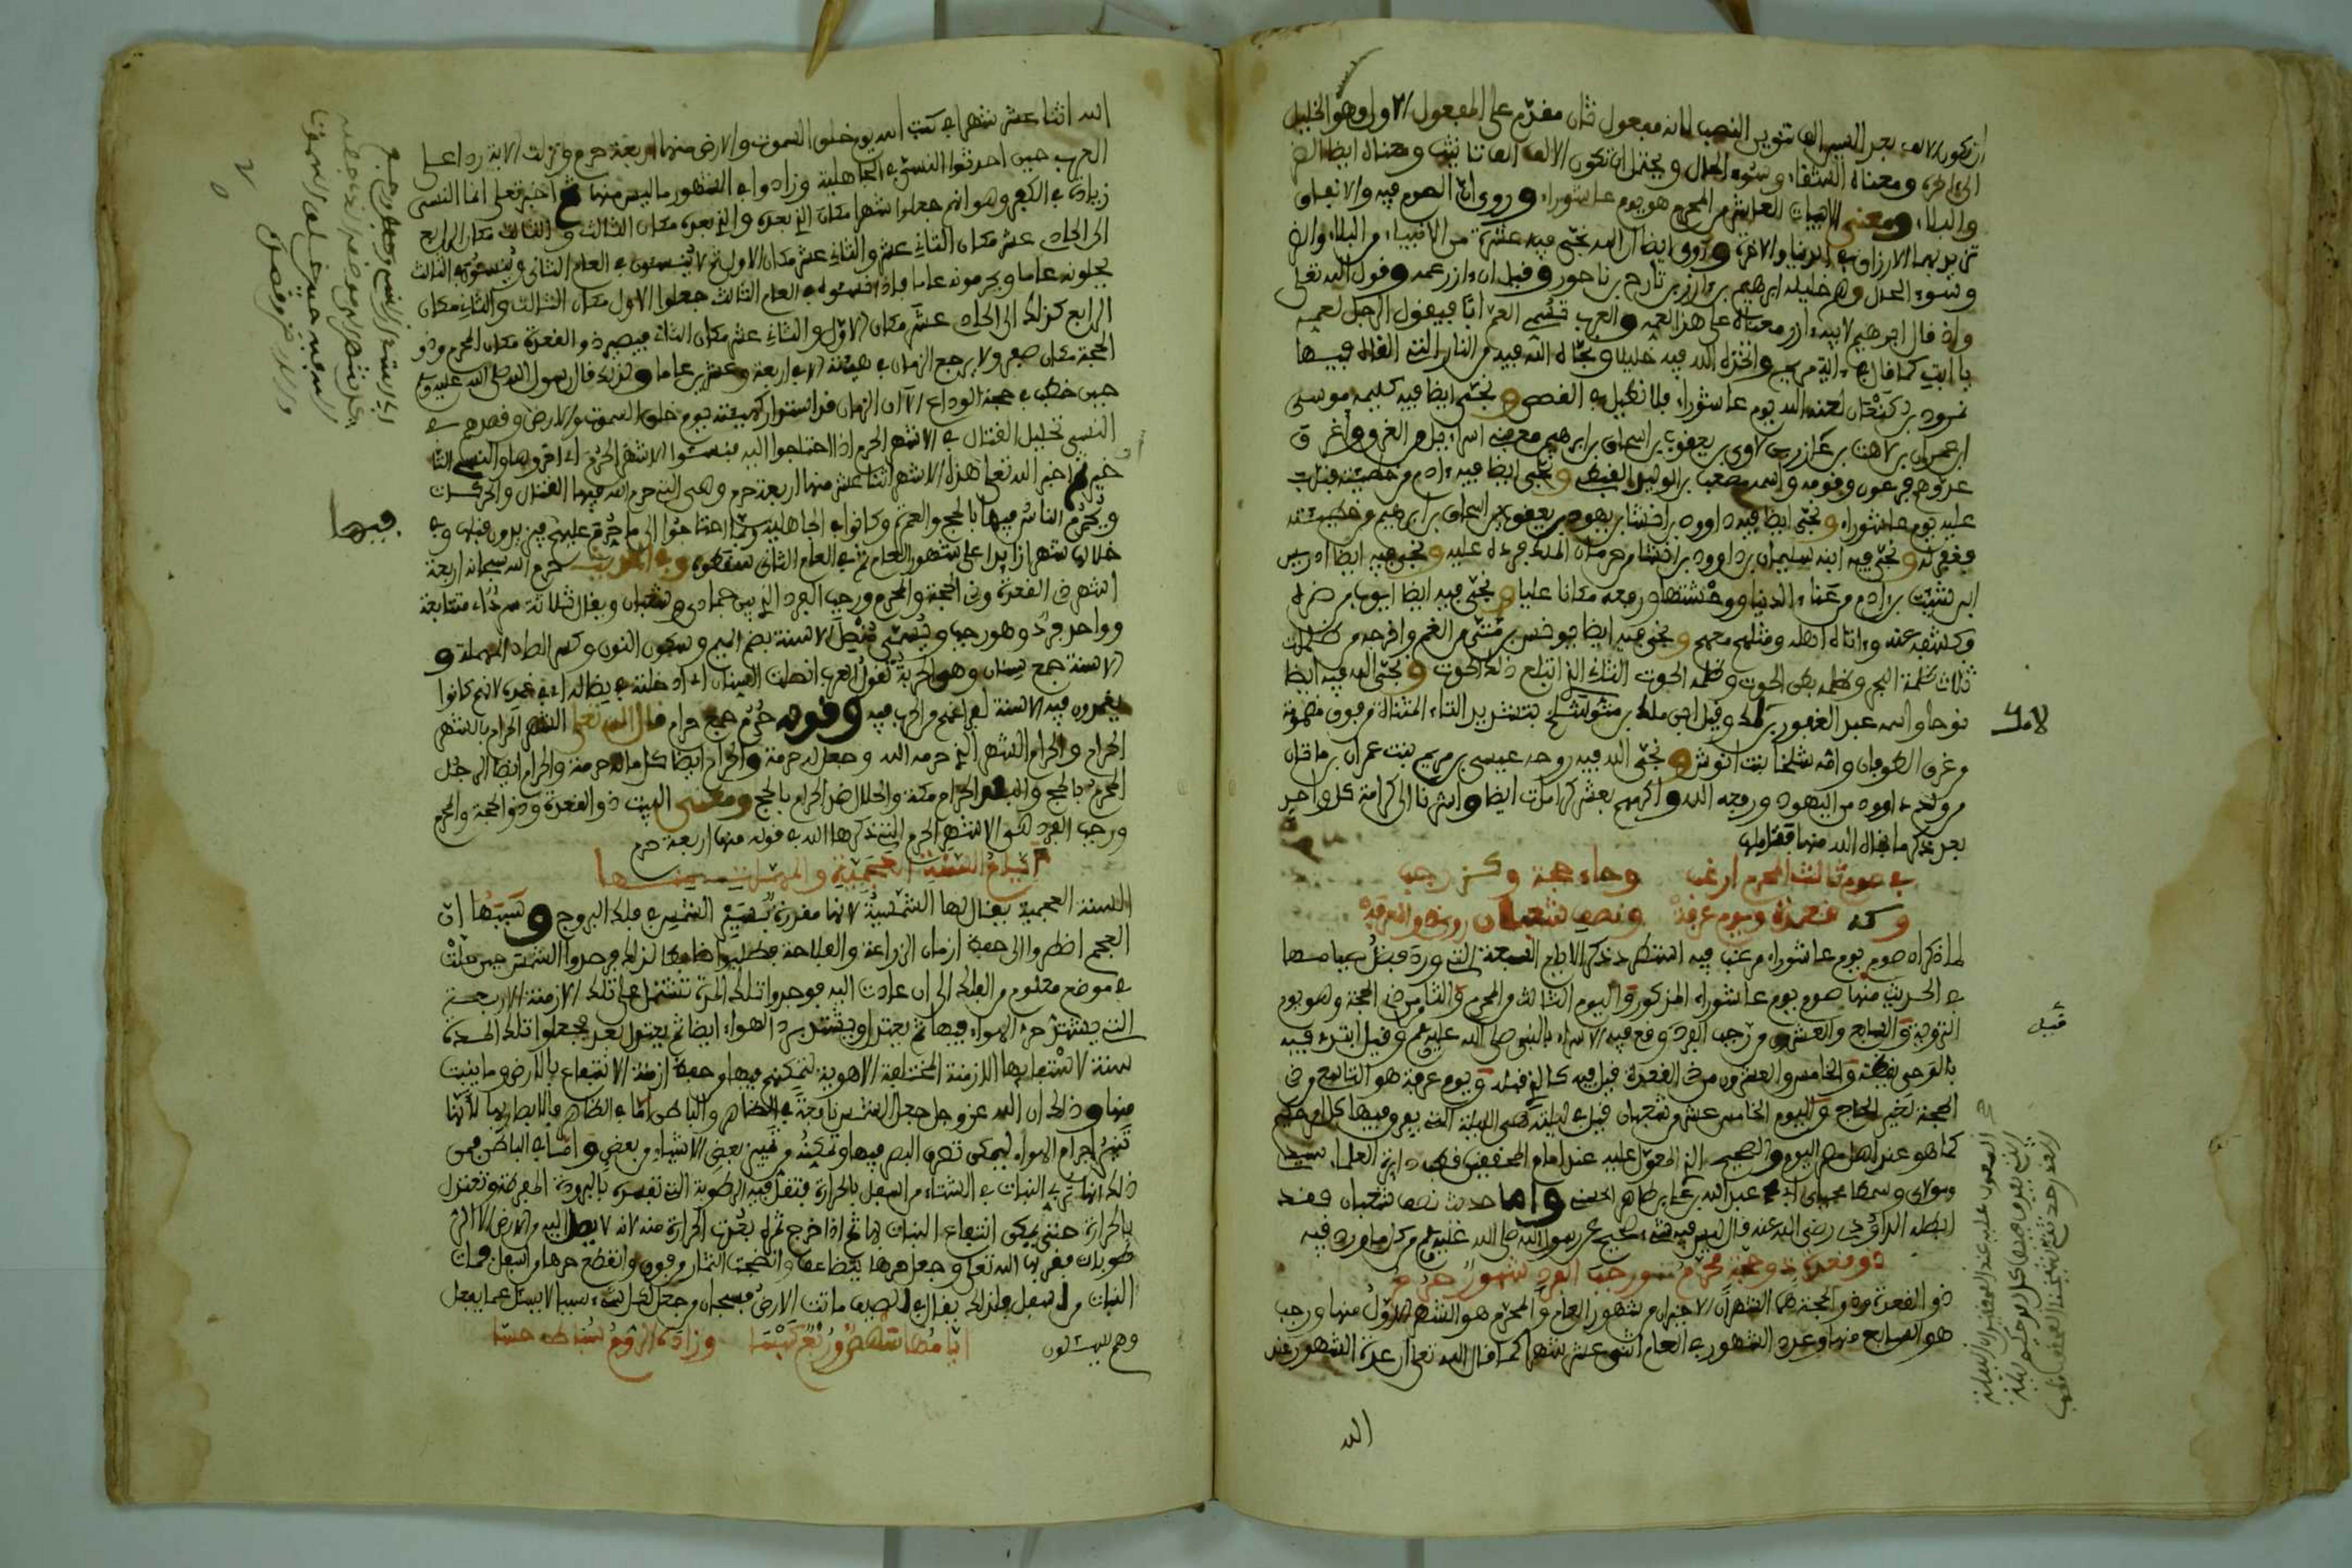 ان تكون الالف بعد السين الف تنوين النصب لانه مفعول ثان مقدم على المفعول الاول وهو الخليل
ومعناه الشقاء وسوء الحال ويحتمل ان تكون الالف الف تانيث ومعناه ايضا الضر
والبلاء ومعنى الابيات العاشر من المحرم هو يوم عاشوراء وروي ان الصوم فيه والانفاق
تزيد بهما الارزاق في الدنيا والاخرة وروي ايضا ان الله نجى فيه عشرة من الانبياء من البلاء والضر
وسوء الحال وهم خليله ابرهيم بن ءازر بن تارح بن ناحور وقيل ان ءازر عمه وقول الله تعلى
واذ قال ابرهيم لابيه ءازر معناه على هذا لعمه والعرب تسمي العم ابا فيقول الرجل لعمه
يا ابت كما قال في ءاية مريم واتخذه الله فيه خليلا ونجاه الله فيه من النار التي القاه فيها
نمرود بن كنعان لعنه الله يوم عاشوراء فلا نطيل في القصص ونجى ايضا فيه كليمه موسى
ابن عمران بن قاهت بن عازر بن لاوي بن يعقوب بن اسحاق بن ابرهيم مع بني اسراءيل من الغرق واغرق
عدوهم فرعون وقومه واسمه مصعب بن الوليد القبطي ونجى ايضا فيه ءادم من خطيئته فتاب
عليه يوم عاشوراء ونجى ايضا فيه داوود بن افشا بن يهود بن يعقوب بن اسحاق بن ابرهيم من خطيئته
فغفر له ونجى فيه ابنه سليمان بن داوود بن افشا من حرمان الملك فرده عليه ونجى فيه ايضا ادريس
ابن شيث بن ءادم من عناء الدنيا ووحشتها ورفعه مكانا عليا ونجى فيه ايضا ايوب من ضره
وكشفه عنه وءاتاه اهله ومثلهم معهم ونجى فيه ايضا يونس بن متى من الغم وافرجه من ظلمات
ثلاث ظلمة البحر وظلمة بطن الحوت وظلمة الحوت الثاني الذي ابتلع ذلك الحوت ونجى الله فيه ايضا
نوحا واسمه عبد الغفور بن لمك وقيل ابن ملك بن متوشلخ بتشديد التاء المثناة من فوق مضمومة
لامك
من غرق الطوفان وامه شلخا بنت انوش ونجى الله فيه روحه عيسى بن مريم بنت عمران بن ماثان
من ولد داوود من اليهود ورفعه الله واكرمهم بعشر كرامات ايضا واشرنا الى كرامة كل واحد
بعد ذكر ما نجاه الله منها فتاملها
في صوم ثالث المحرم ارغب وحاء حجة وكز رجب
وكه قعدة ويوم عرفة ونصف شعبان روى ذو المعرفة
لما ذكران صوم يوم عاشوراء مرغب فيه استطرد ذكر الايام السبعة التي ورد فضل صيامها
في الحديث منها صوم يوم عاشوراء المذكور واليوم الثالث من المحرم والثامن من ذي الحجة وهو يوم
التروية والسابع والعشرون من رجب الفرد وقع فيه الاسراء بالنبي صلى الله عليه وسلم وقيل ابتدء فيه
قبل
بالوحي يقظة والخامس والعشرون من ذي القعدة قيل فيه كالذي قبله ويوم عرفة هو التاسع من ذي
الحجة لغير الحاج واليوم الخامس عشر من شعبان قيل في ليلته هي الليلة التي يفرق فيها كل امر حكيم
كما هو عند اهل مصر اليوم والصحيح الذي المعول عليه عند امام المحققين
وسيدي ومولاي عبد الله بن علي بن طاهر الحسني واما حديث نصف شعبان فقد
ابطله الداودي رضي الله عنه قال ليس فيه شيء صحيح عن رسول الله صلى الله عليه وسلم من كل ما ورد فيه
ذو قعدة ذو حجة محرم ورجب الفرد شهور حرم
ذو القعدة وذو الحجة هما الشهران الاخيران من شهور العام والمحرم هو الشهر الاول منها ورجب
هو السابع منها وعدد الشهور في العام اثنى عشر شهرا كما قال الله تعلى ان عدة الشهور عند
الله
الله اثنا عشر شهرا في كتب الله يوم خلق السموت والارض منها اربعة حرم ونزلت الاية ردا على
العرب حين احدثوا النسيء في الجاهلية وزادوا في الشهور ما ليس منها ثم اخبر تعلى انما النسي
زيادة في الكفر وهو انهم جعلوا شهرا مكان الذي بعده والذي بعده مكان الثالث والثالث مكان الرابع
الى الحادي عشر مكان الثاني عشر والثاني عشر مكان الاول ثم لا ينسون في العام الثاني وينسون في الثالث
يحلونه عاما ويحرمونه عاما فاذا نسوه في العام الثالث جعلوا الاول مكان الثالث والثاني مكان
الرابع كذلك الى الحادي عشر مكان الاول والثاني عشر مكان الثاني فيصير ذو القعدة مكان المحرم وذو
الحجة مكان صفر ولا يرجع الزمان في هيئته الا في اربعة وعشرين عاما ولذلك قال رسول الله صلى الله عليه وسلم
حين خطب في حجة الوداع الا ان الزمان قد استدار كهيئته يوم خلق السموت والارض وقصدهم في
النسي تحليل القتال في الاشهر الحرم اذا احتاجوا اليه فنسئوا الاشهر الحرم اي اخروها والنسي التا
خير ثم اخبر الله تعلى هذه الاشهر اثنا عشر منها اربعة حرم وهي التي حرم الله فيها القتال والحركات
فيها
ويحرم الناس فيها بالحج والعمرة وكانوا في الجاهلية ربما احتاجوا الى ما حرم عليهم فيزيدون قبله وفي
خلاله شهرا زايدا على شهور العام ثم في العام الثاني سقطوه وفي الحديث حرم الله سبحانه اربعة
اشهر ذي القعدة وذي الحجة والمحرم ورجب الفرد الذي بين جمادى وشعبان ويقال ثلاثة سرد اي متتابعة
وواحد فرد وهو رجب ويسمى منصل الاسنة بضم الميم وسكون النون وكسر الطاء المهملة و
الاسنة جمع سنان وهو الحربة تقول العرب انصلت السنان اي ادخلته في نصاله اي في غمده لانهم كانوا
يغمدون فيه الاسنة لفراغهم من الحرب فيه وقوله حرم جمع حرام قال الله تعلى الشهر الحرام بالشهر
الحرام والحرام الشهر الذي حرمه الله وجعل له حرمة والحرام ايضا كل ما له حرمة والحرام ايضا الرجل
المحرم بالحج والبلد الحرام مكة والحلال ضد الحرام بالحج ومعنى البيت ذو القعدة وذو الحجة والمحرم
ورجب الفرد هي الاشهر الحرم التي ذكرها الله في قوله منها اربعة حرم
ايام السنة العجمية
السنة العجمية يقال لها الشمسية لانها مقدرة بسير الشمس في فلك البروج وسببها ان
العجم اضطروا الى حفظ ازمان الزراعة والفلاحة فطلبوا ضابطا لذلك فوجدوا الشمس حين حلت
في موضع معلوم من الفلك الى ان عادت اليه فوجدوا تلك المدة تشتمل على تلك الازمنة الاربعة
التي يشتد حر الهواء فيها ثم يعتدل ويشتد برد الهواء ايضا ثم يعتدل بعد فجعلوا تلك المدة
سنة لاشتمالها الازمنة المختلفة الاهوية ليمكنهم فيها وحفظ ازمنة الانتفاع بالارض وما ينبت
منها وذلك ان الله عز وجل جعل الشمس نافعة في الظاهر والباطن اما في الظاهر فالابصار بها لانها
تنير اجرام الهواء ليمكن تصرف البصر فيها وتمكنه من تمييز بعض الاشياء من بعض واما في الباطن فمن
ذلك انها تربي النبات في الشتاء من اسفل بالحرارة فتقل فيه الرطوبة التي تفسده بالبرودة المفرطة وتعتدل
بالحرارة حتى يمكن انتفاع النبات بها ثم اذا خرج ثمره بعدت الحرارة منه لانه لا يصل اليه من الارض الا اثر
رطوبات فقربها الله تعلى وجعل حرها يتضاعف وانضجت الثمار من فوق وانقطع حرها من اسفل فمات
النبات من اسفل فلذلك يقال في الصيف ماتت الارض فسبحان من جعل لكل شيء سببا لا يسئل عما يفعل
وهم يسئلون ايامها شسه وربع كيسا وزادت الروم